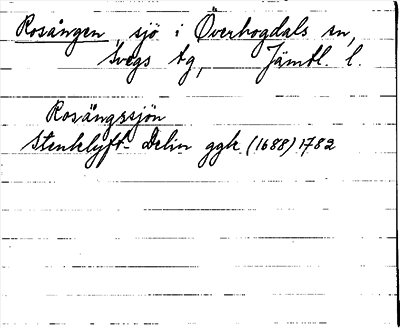 Rosången, sjö i Överhogdals sn,
Svegs tg, Jämtl. l.
Rosängssjön
Stenklyft- Delin ggk (1688) 1782